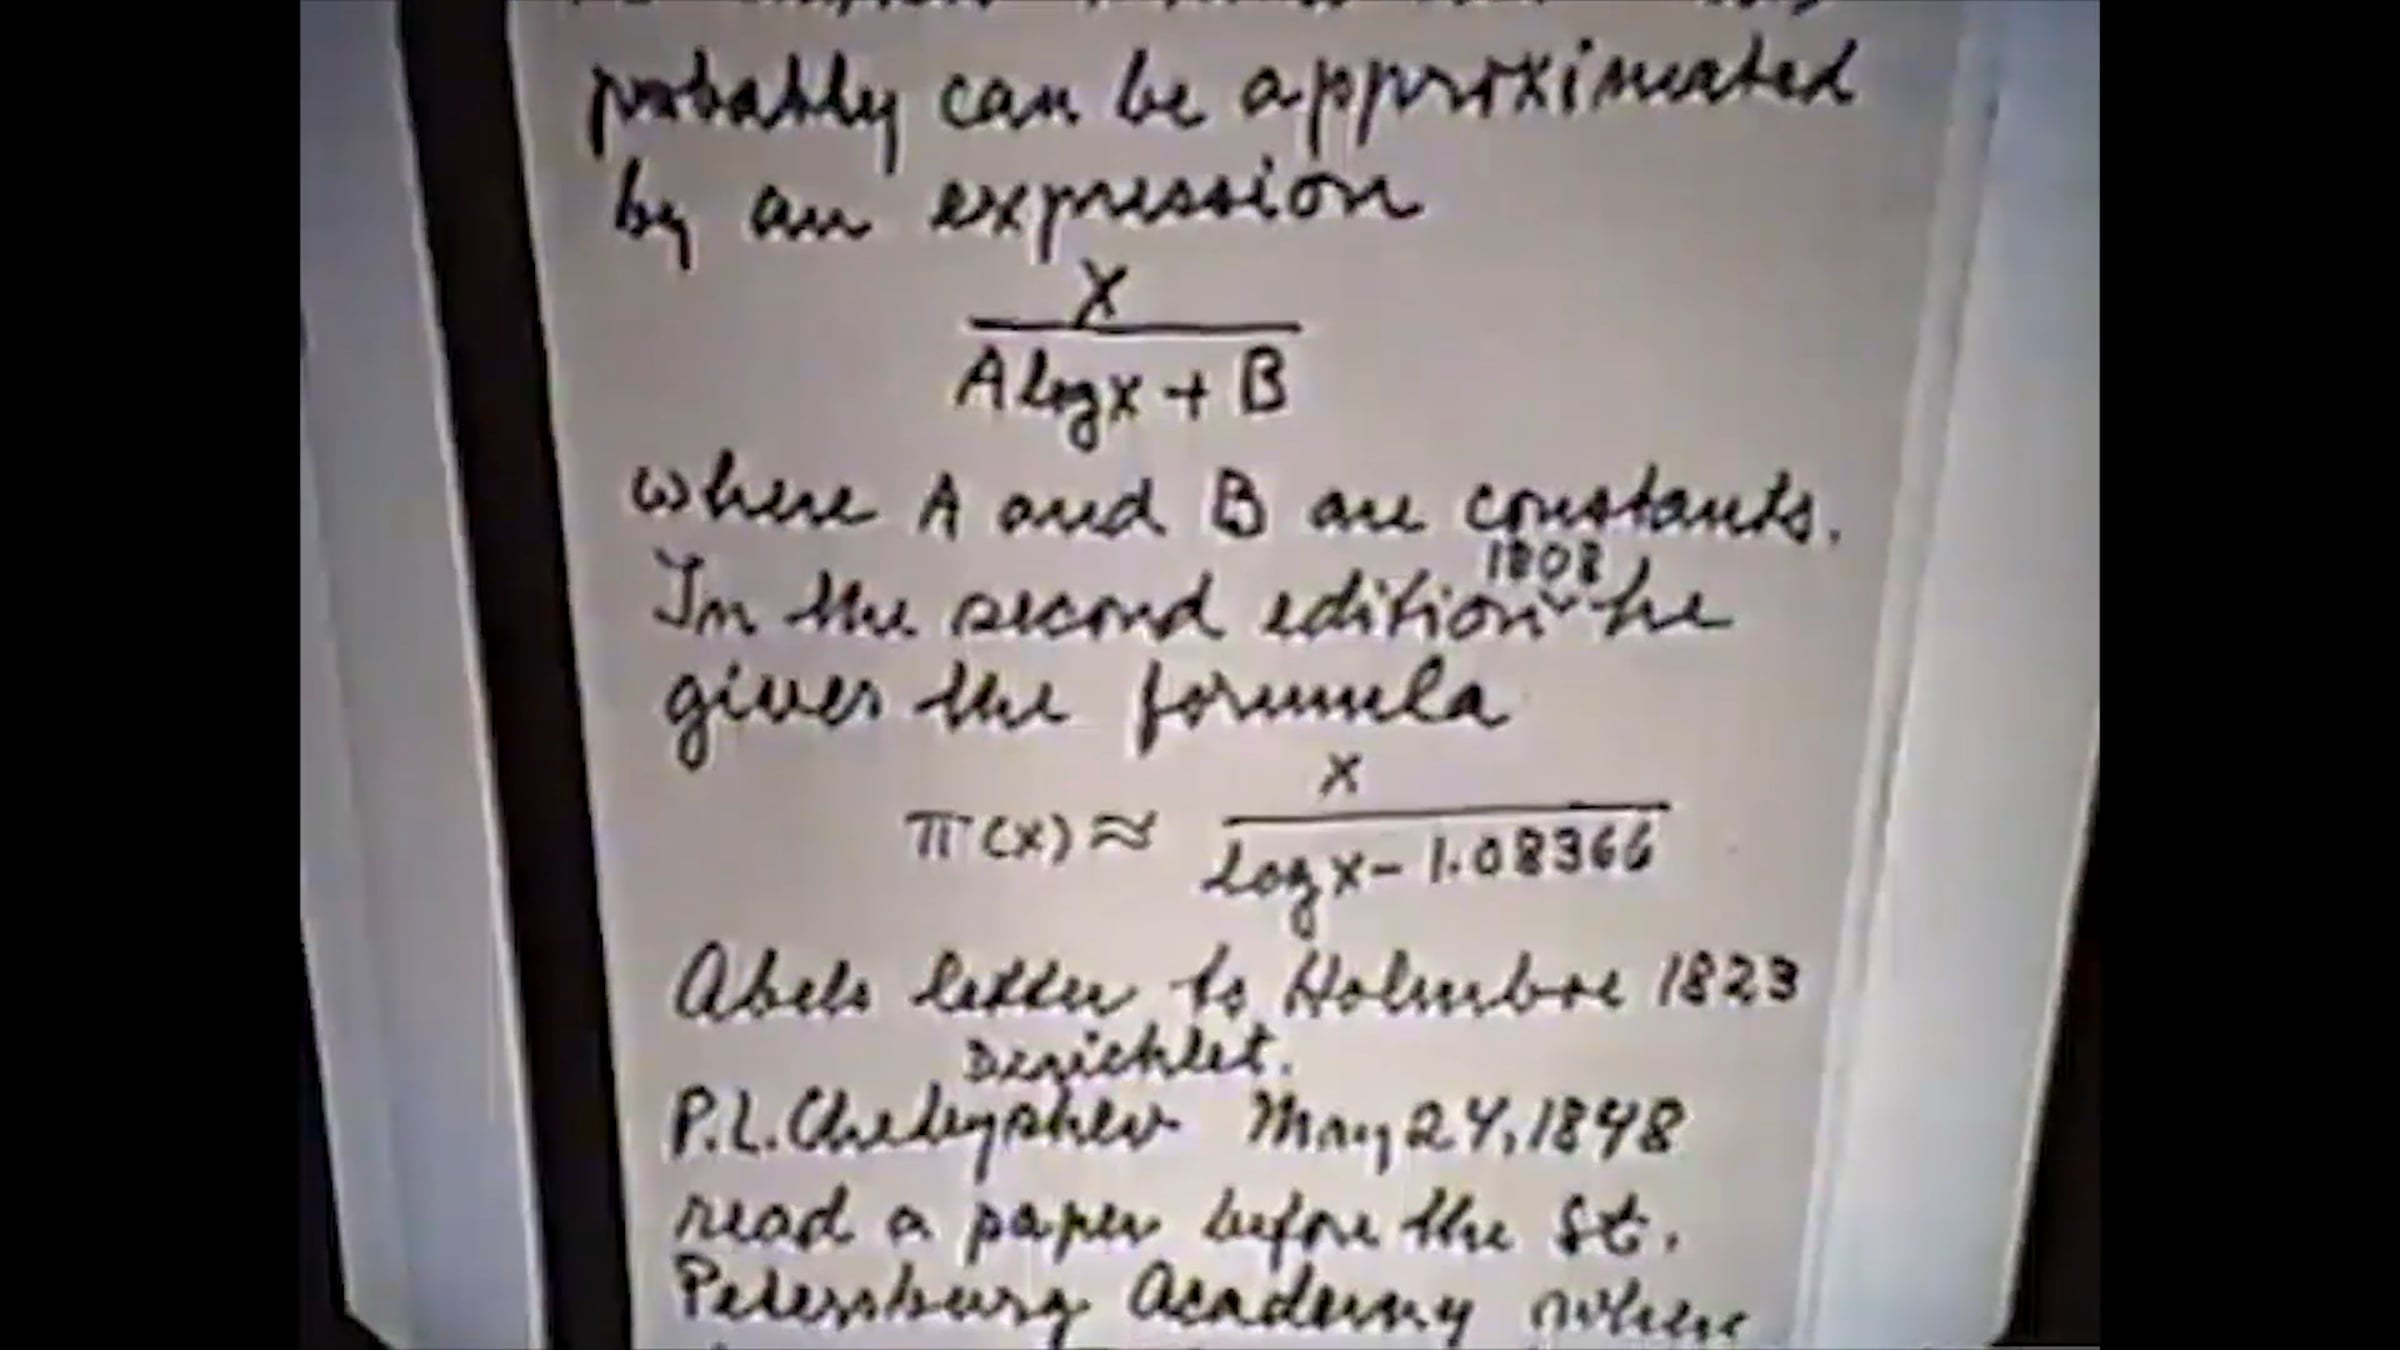 probably can be approximated
by an expression
x
A log x + B
where A and B are constants.
1808
In the second edition he
gives the formula
π(x) ≈ x / log x - 1.08366
Abels letter to Holmboe 1823
Dirichlet.
P.L. Chebyshev May 24, 1848
read a paper before the St.
Petersburg Academy where